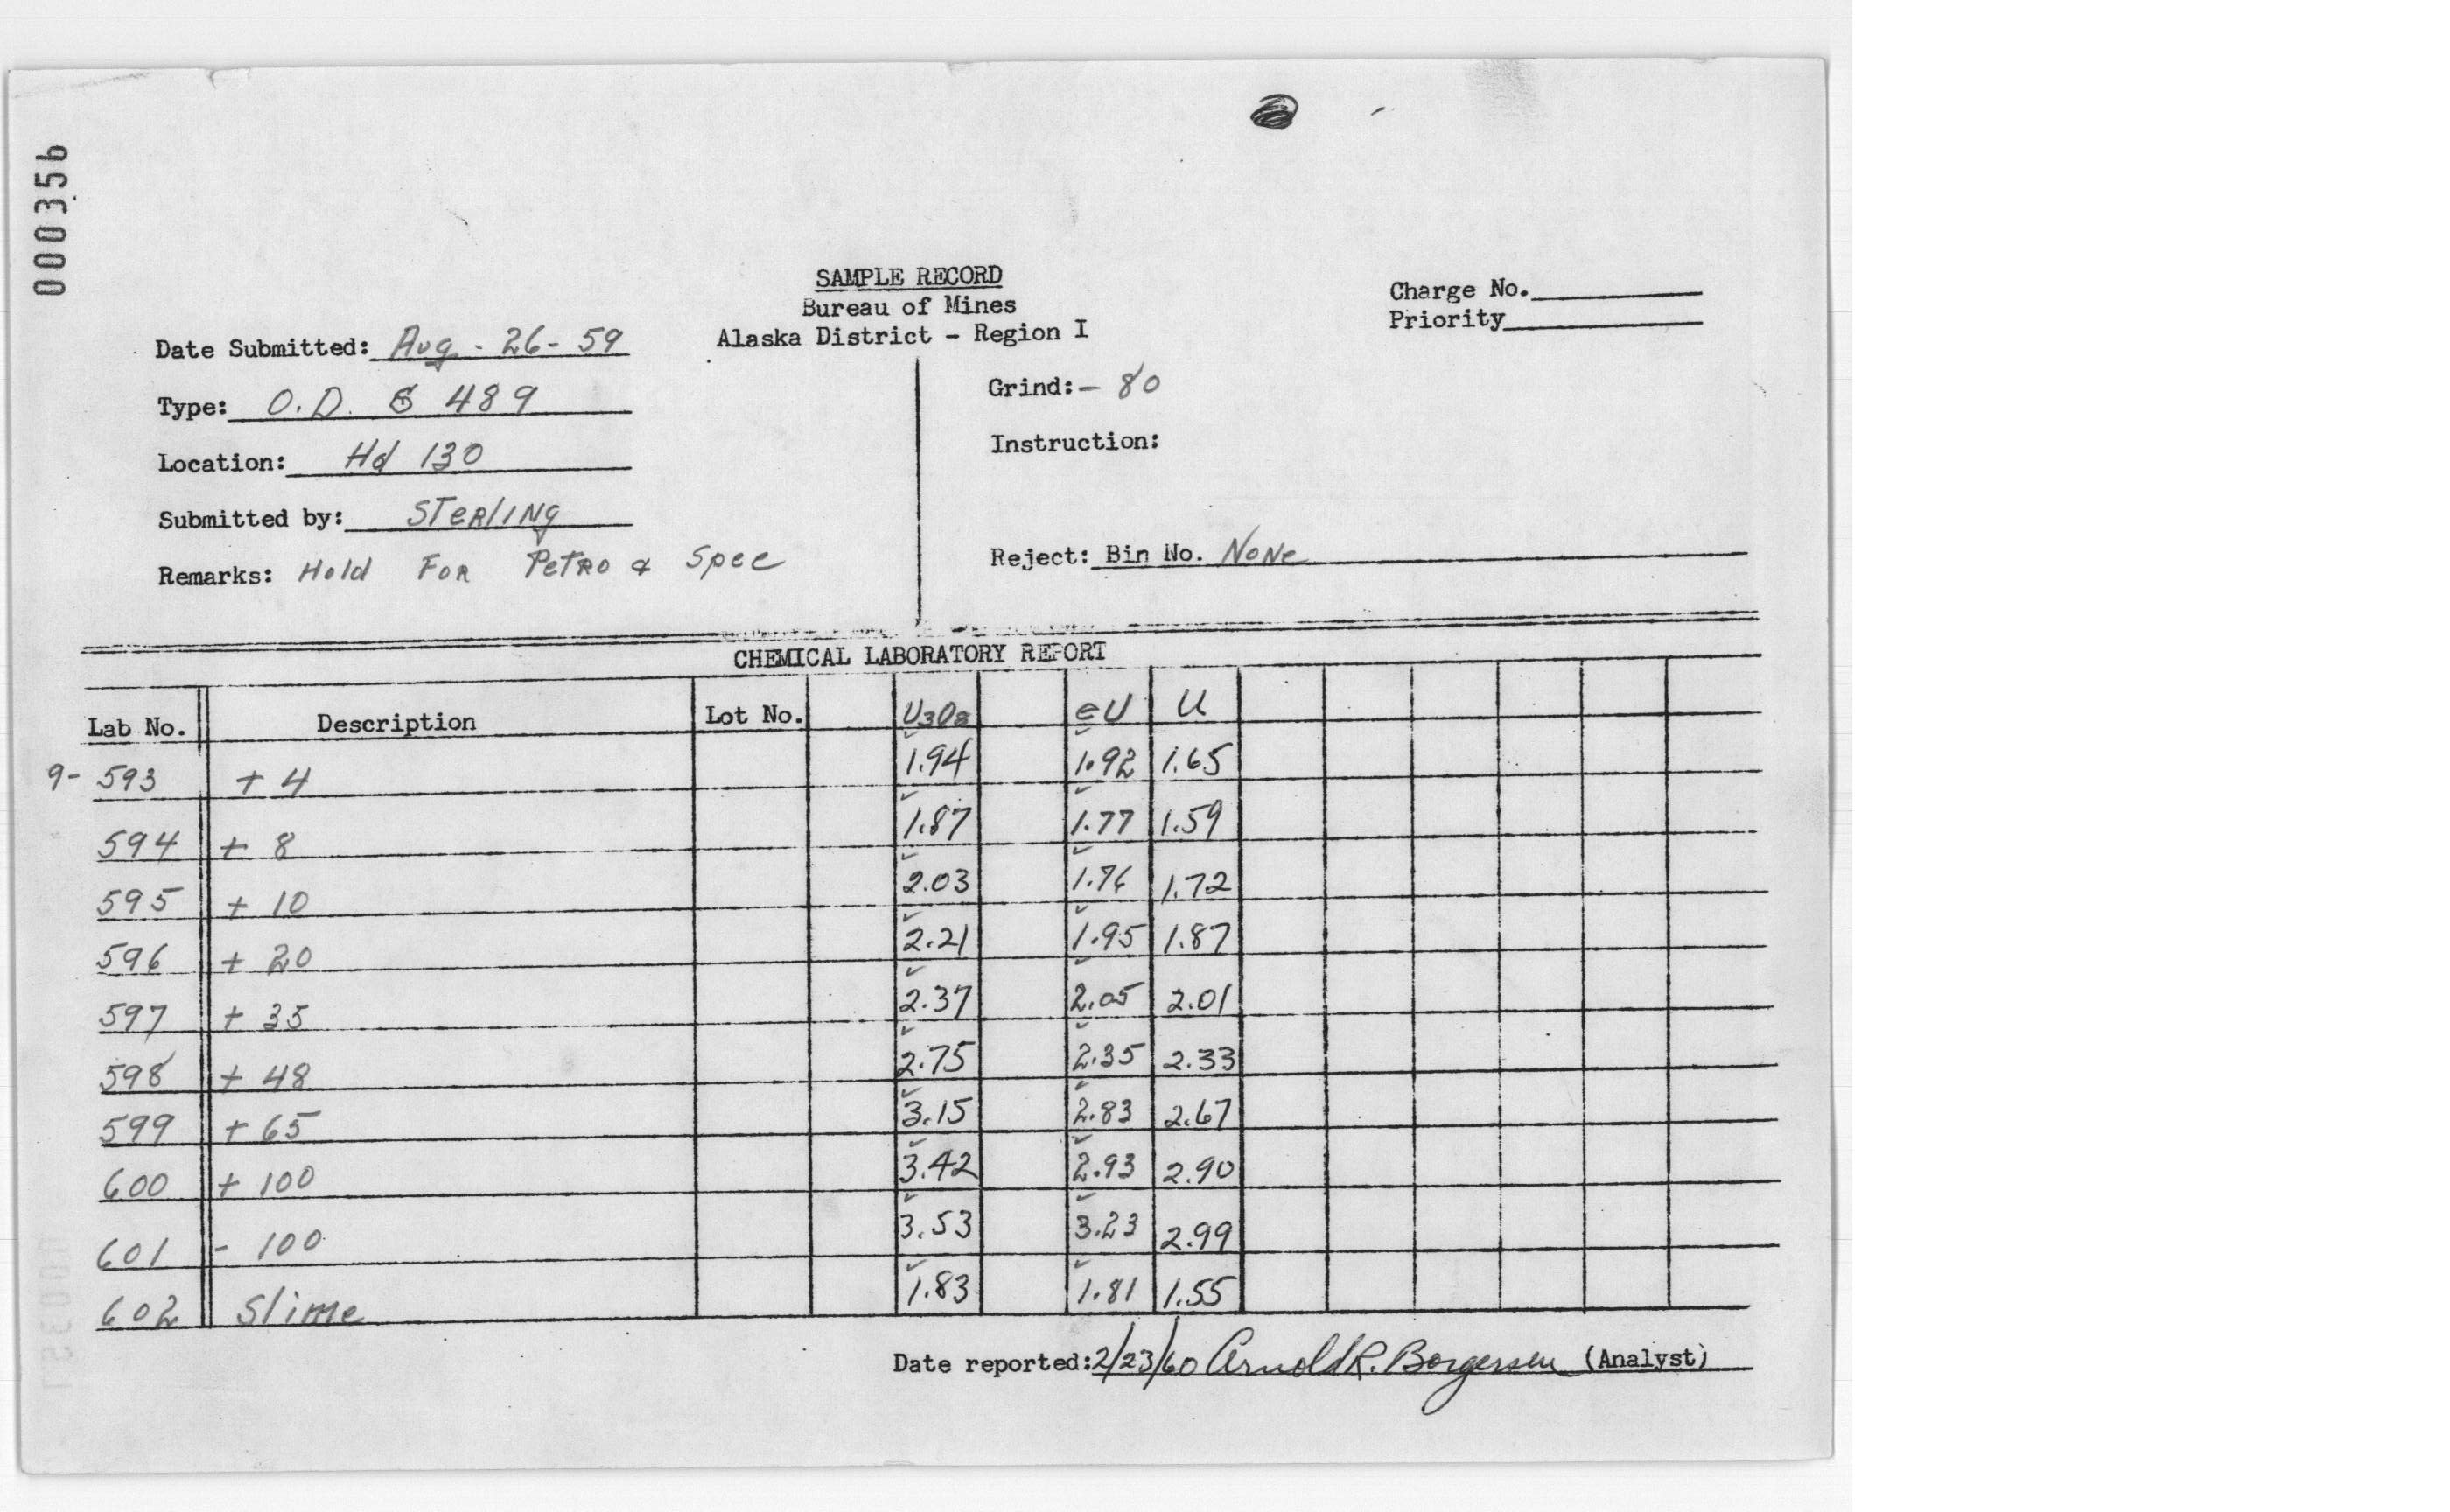 000356
SAMPLE RECORD
Bureau of Mines
Alaska District - Region I
Charge No.
Priority
Date Submitted: Aug - 26 - 59
Type: O.D. S 489
Location: Hd 130
Submitted by: STeRlINg
Remarks: Hold FoR PeTRo & Spec
Grind: - 80
Instruction:
Reject: Bin No. NoNe
CHEMICAL LABORATORY REPORT
Lab No. Description Lot No. U3O8 eU U
9- 593 + 4 1.94 1.92 1.65
594 + 8 1.87 1.77 1.59
595 + 10 2.03 1.76 1.72
596 + 20 2.21 1.95 1.87
597 + 35 2.37 2.05 2.01
598 + 48 2.75 2.35 2.33
599 + 65 3.15 2.83 2.67
600 + 100 3.42 2.93 2.90
601 - 100 3.53 3.23 2.99
602 Slime 1.83 1.81 1.55
Date reported: 2/23/60 Arnold R. Borgersen (Analyst)